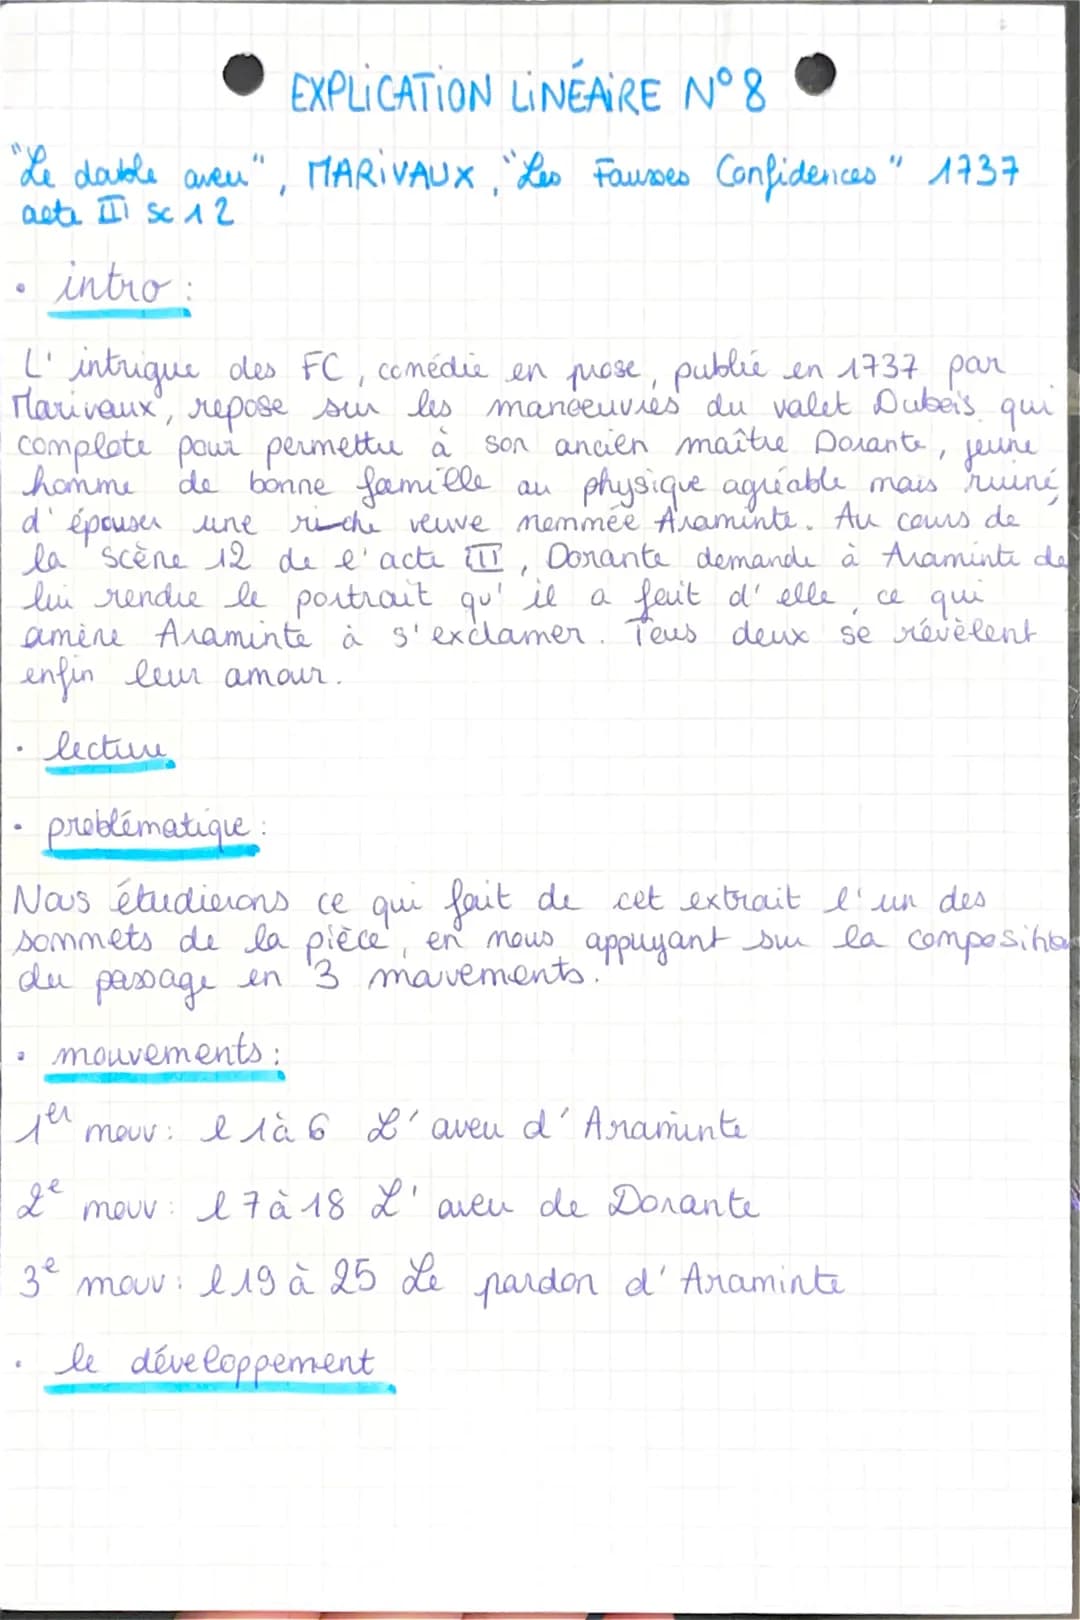 EXPLICATION LINÉAIRE N° 8
"Le double aveu", MARIVAUX, "Les Fausses Confidences" 1737
acte III sc 12
• intro :
L'intrigue des FC, comédie en prose, publié en 1737 par
Marivaux, repose sur les manoeuvres du valet Dubois qui
complote pour permettre à son ancien maître Dorante, jeune
homme de bonne famille au physique agréable mais ruiné,
d'épouser une riche veuve nommée Araminte. Au cours de
la scène 12 de l'acte III, Dorante demande à Araminte de
lui rendre le portrait qu'il a fait d'elle, ce qui
amène Araminte à s'exclamer. Tous deux se révèlent
enfin leur amour.
• lecture
• problématique :
Nous étudierons ce qui fait de cet extrait l'un des
sommets de la pièce, en nous appuyant sur la composition
du passage en 3 mouvements.
• mouvements :
1er mouv : l 1 à 6 L'aveu d'Araminte
2e mouv : l 7 à 18 L'aveu de Dorante
3e mouv : l 19 à 25 Le pardon d'Araminte
• le développement